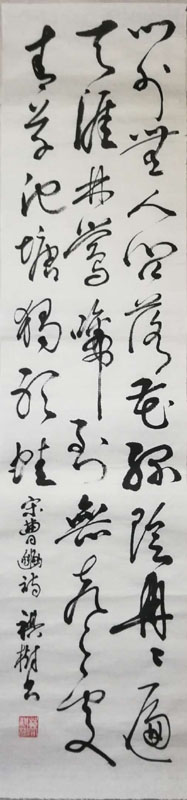 门外無人问落花綠陰冉々遍
天涯林鶯啼到無聲處
青草池塘獨听蛙
宋曹豳詩 祺樹书